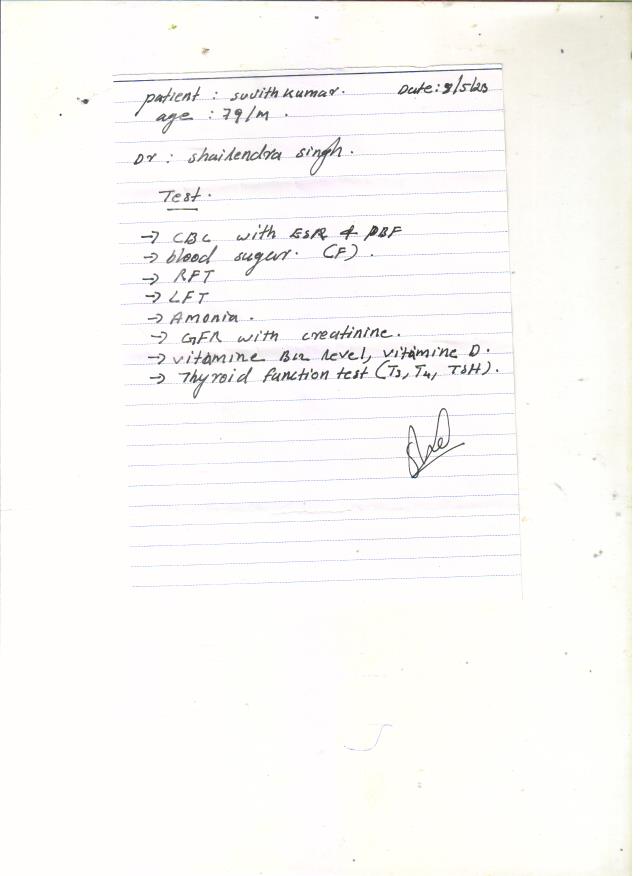 patient : suvith kumar. Date: 3/5/23
age : 79/M.
Dr : Shailendra singh.
Test.
→ CBC with ESR & PBF
→ blood sugar. (F).
→ RFT
→ LFT
→ Amonia.
→ GFR with creatinine.
→ vitamine B12 level, vitamine D.
→ Thyroid function test (T3, T4, TSH).